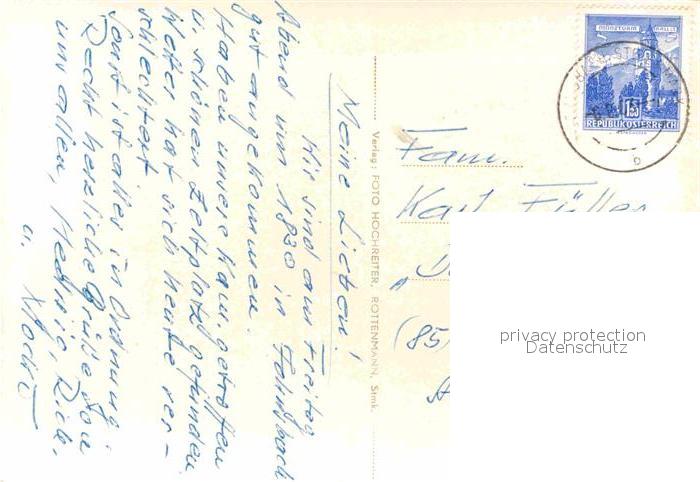 Meine Lieben!
Wir sind am Freitag
Abend um 1830 in
gut angekommen.
Haben unsere Kam. getroffen
u. schönen Zeltplatz gefunden.
Wetter hat sich heute ver-
schlechtert
Sonst ist alles in Ordnung.
Recht herzliche Grüße von
uns allen, Hedwig, Rick,
u.
Verlag: FOTO HOCHREITER, ROTTENMANN, Stmk.
MÜNZTURM HALL I. T.
1.50
REPUBLIK ÖSTERREICH
b
Fam.
Karl Füller
(85)
privacy protection
Datenschutz